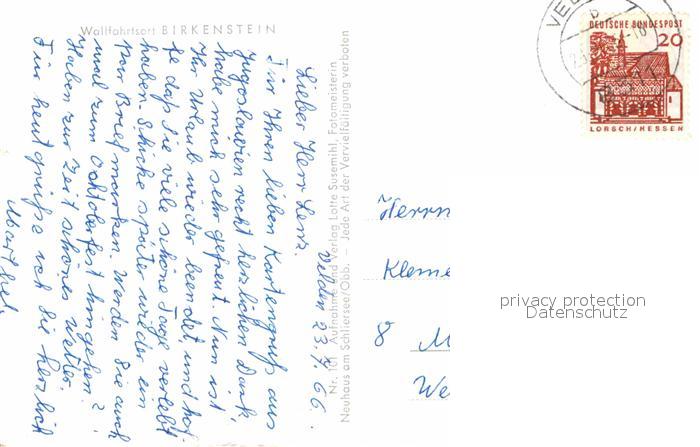 Wallfahrtsort BIRKENSTEIN
Velden 23.7.66.
Lieber Herr Lenz.
Für Ihren lieben Kartengruß aus
Jugoslawien recht herzlichen Dank,
habe mich sehr gefreut. Nun ist
Ihr Urlaub wieder beendet, und hof-
fe daß Sie viele schöne Tage verlebt
haben. Schicke später wieder ein
paar Briefmarken. Werden Sie auch
mal zum Oktoberfest hingehen?
Haben zur Zeit schönes Wetter.
Für heut grüße ich Sie herzlich
Nr. 101 Aufnahme und Verlag Lotte Susemihl, Fotomeisterin
Neuhaus am Schliersee/Obb. — Jede Art der Vervielfältigung verboten
DEUTSCHE BUNDESPOST
20
LORSCH/HESSEN
Herrn
Kleme
8 M
We
privacy protection
Datenschutz